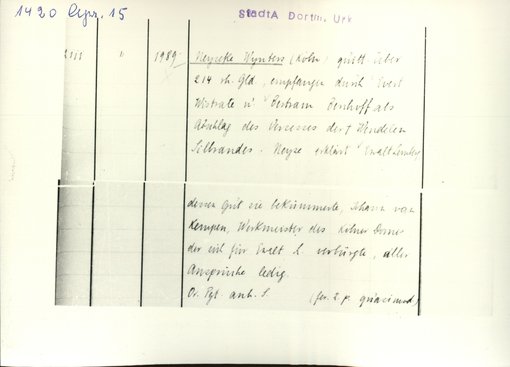 1420 Apr. 15
StadtA Dortm. Urk
2111 " 1989 Neyseke Wynters (Köln) quitt. über
214 rh. Gld, empfangen durch Evert
Wistrate u Bertram Benhoff als
Abschlag des Processes der † Wendelen
Silbrandes. Neyse erklärt Ewalt
deren Gut sie bekümmerte, Johann van
Kempen, Werkmeister des Kölner Domes
der sich für Ewalt L. verbürgte, aller
Ansprüche ledig.
Or. Pgt. anh. S. (fer. 2. p. quasimod.)